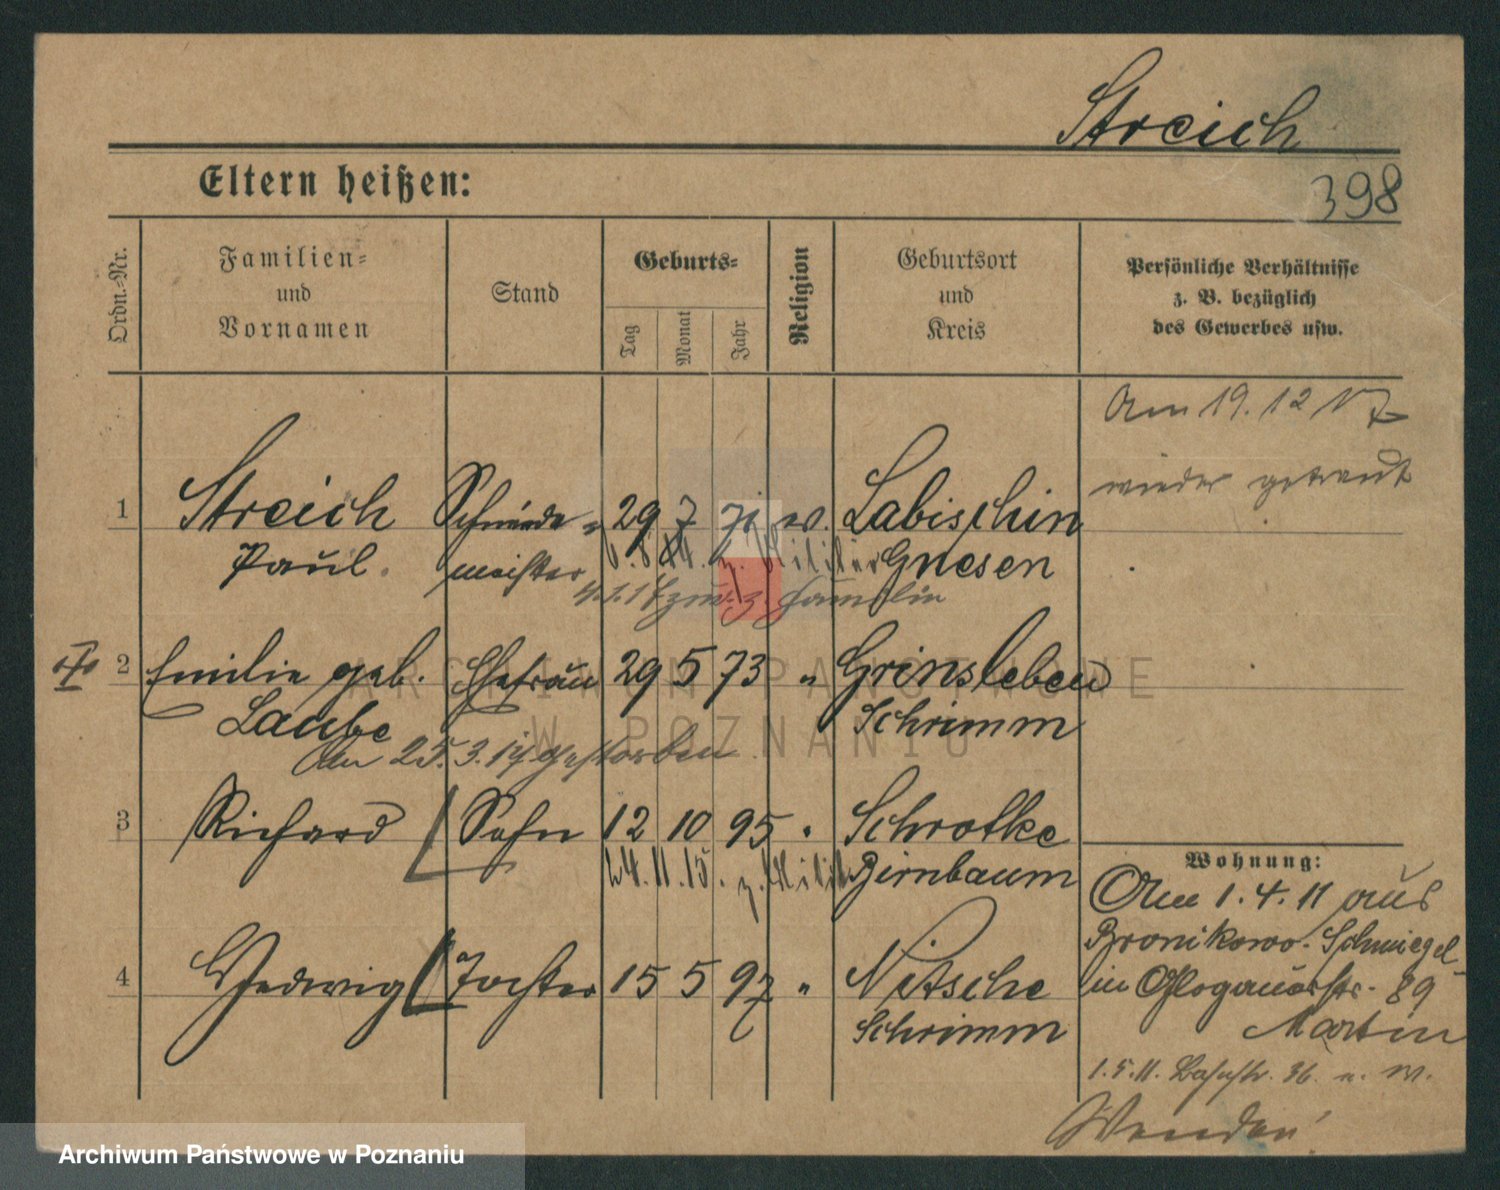 Streich
Eltern heißen:
398
Ordn.-Nr.
Familien-
und
Vornamen
Stand
Geburts-
Tag
Monat
Jahr
Religion
Geburtsort
und
Kreis
Persönliche Verhältnisse
z. B. bezüglich
des Gewerbes usw.
Am 19. 12 17
wieder getraut
1 Streich Schmiede- 29 7 71 ev. Labischin
Paul. meister Gnesen
6. 8. 14. z. Militär
zur. z. Familie
2 Emilie geb. Ehefrau 29 5 73 " Grinsleben
Laube Schrimm
Am 25. 3. 17 gestorben
3 Richard Sohn 12 10 95 " Schrotke
24. 11. 15. z. Milit. Birnbaum
4 Hedwig Tochter 15 5 97 " Nitsche
Schrimm
Wohnung:
Am 1. 4. 11 aus
Bronikowo-Schmiegel
in Glogauerstr. 89
Martin
1. 5. 11. Bahnstr. 36. n. W.
Wenden!
ARCHIWUM PAŃSTWOWE
W POZNANIU
Archiwum Państwowe w Poznaniu